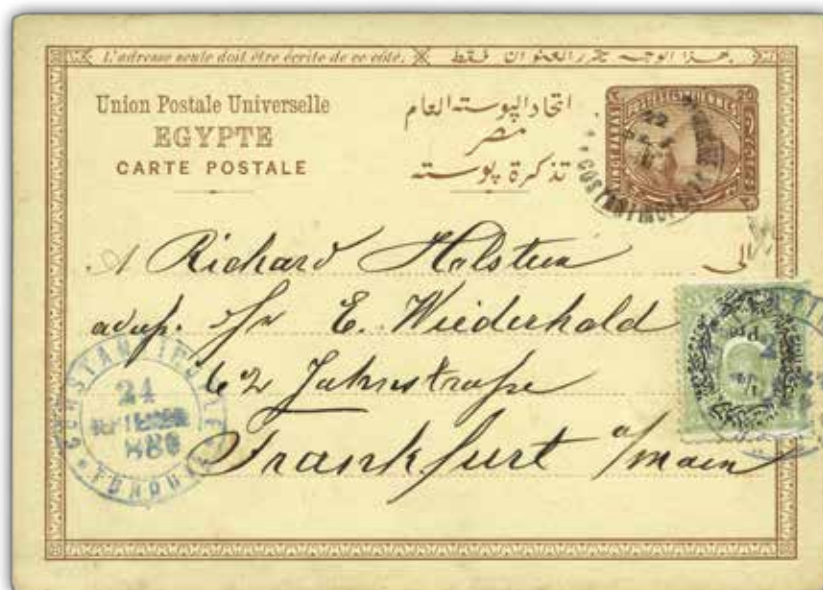 L'adresse seule doit être écrite de ce côté. بهذا الوجه يحرر العنوان فقط.
Union Postale Universelle
EGYPTE
CARTE POSTALE
اتحاد البوسته العام
مصر
تذكرة بوسته
20
COSTANTINOPOLI
22
A Richard Holstein
الى
E. Wiederhold
62 Jahnstraße
Frankfurt a/main
CONSTANTINOPLE
24
SEPTEMBRE
880